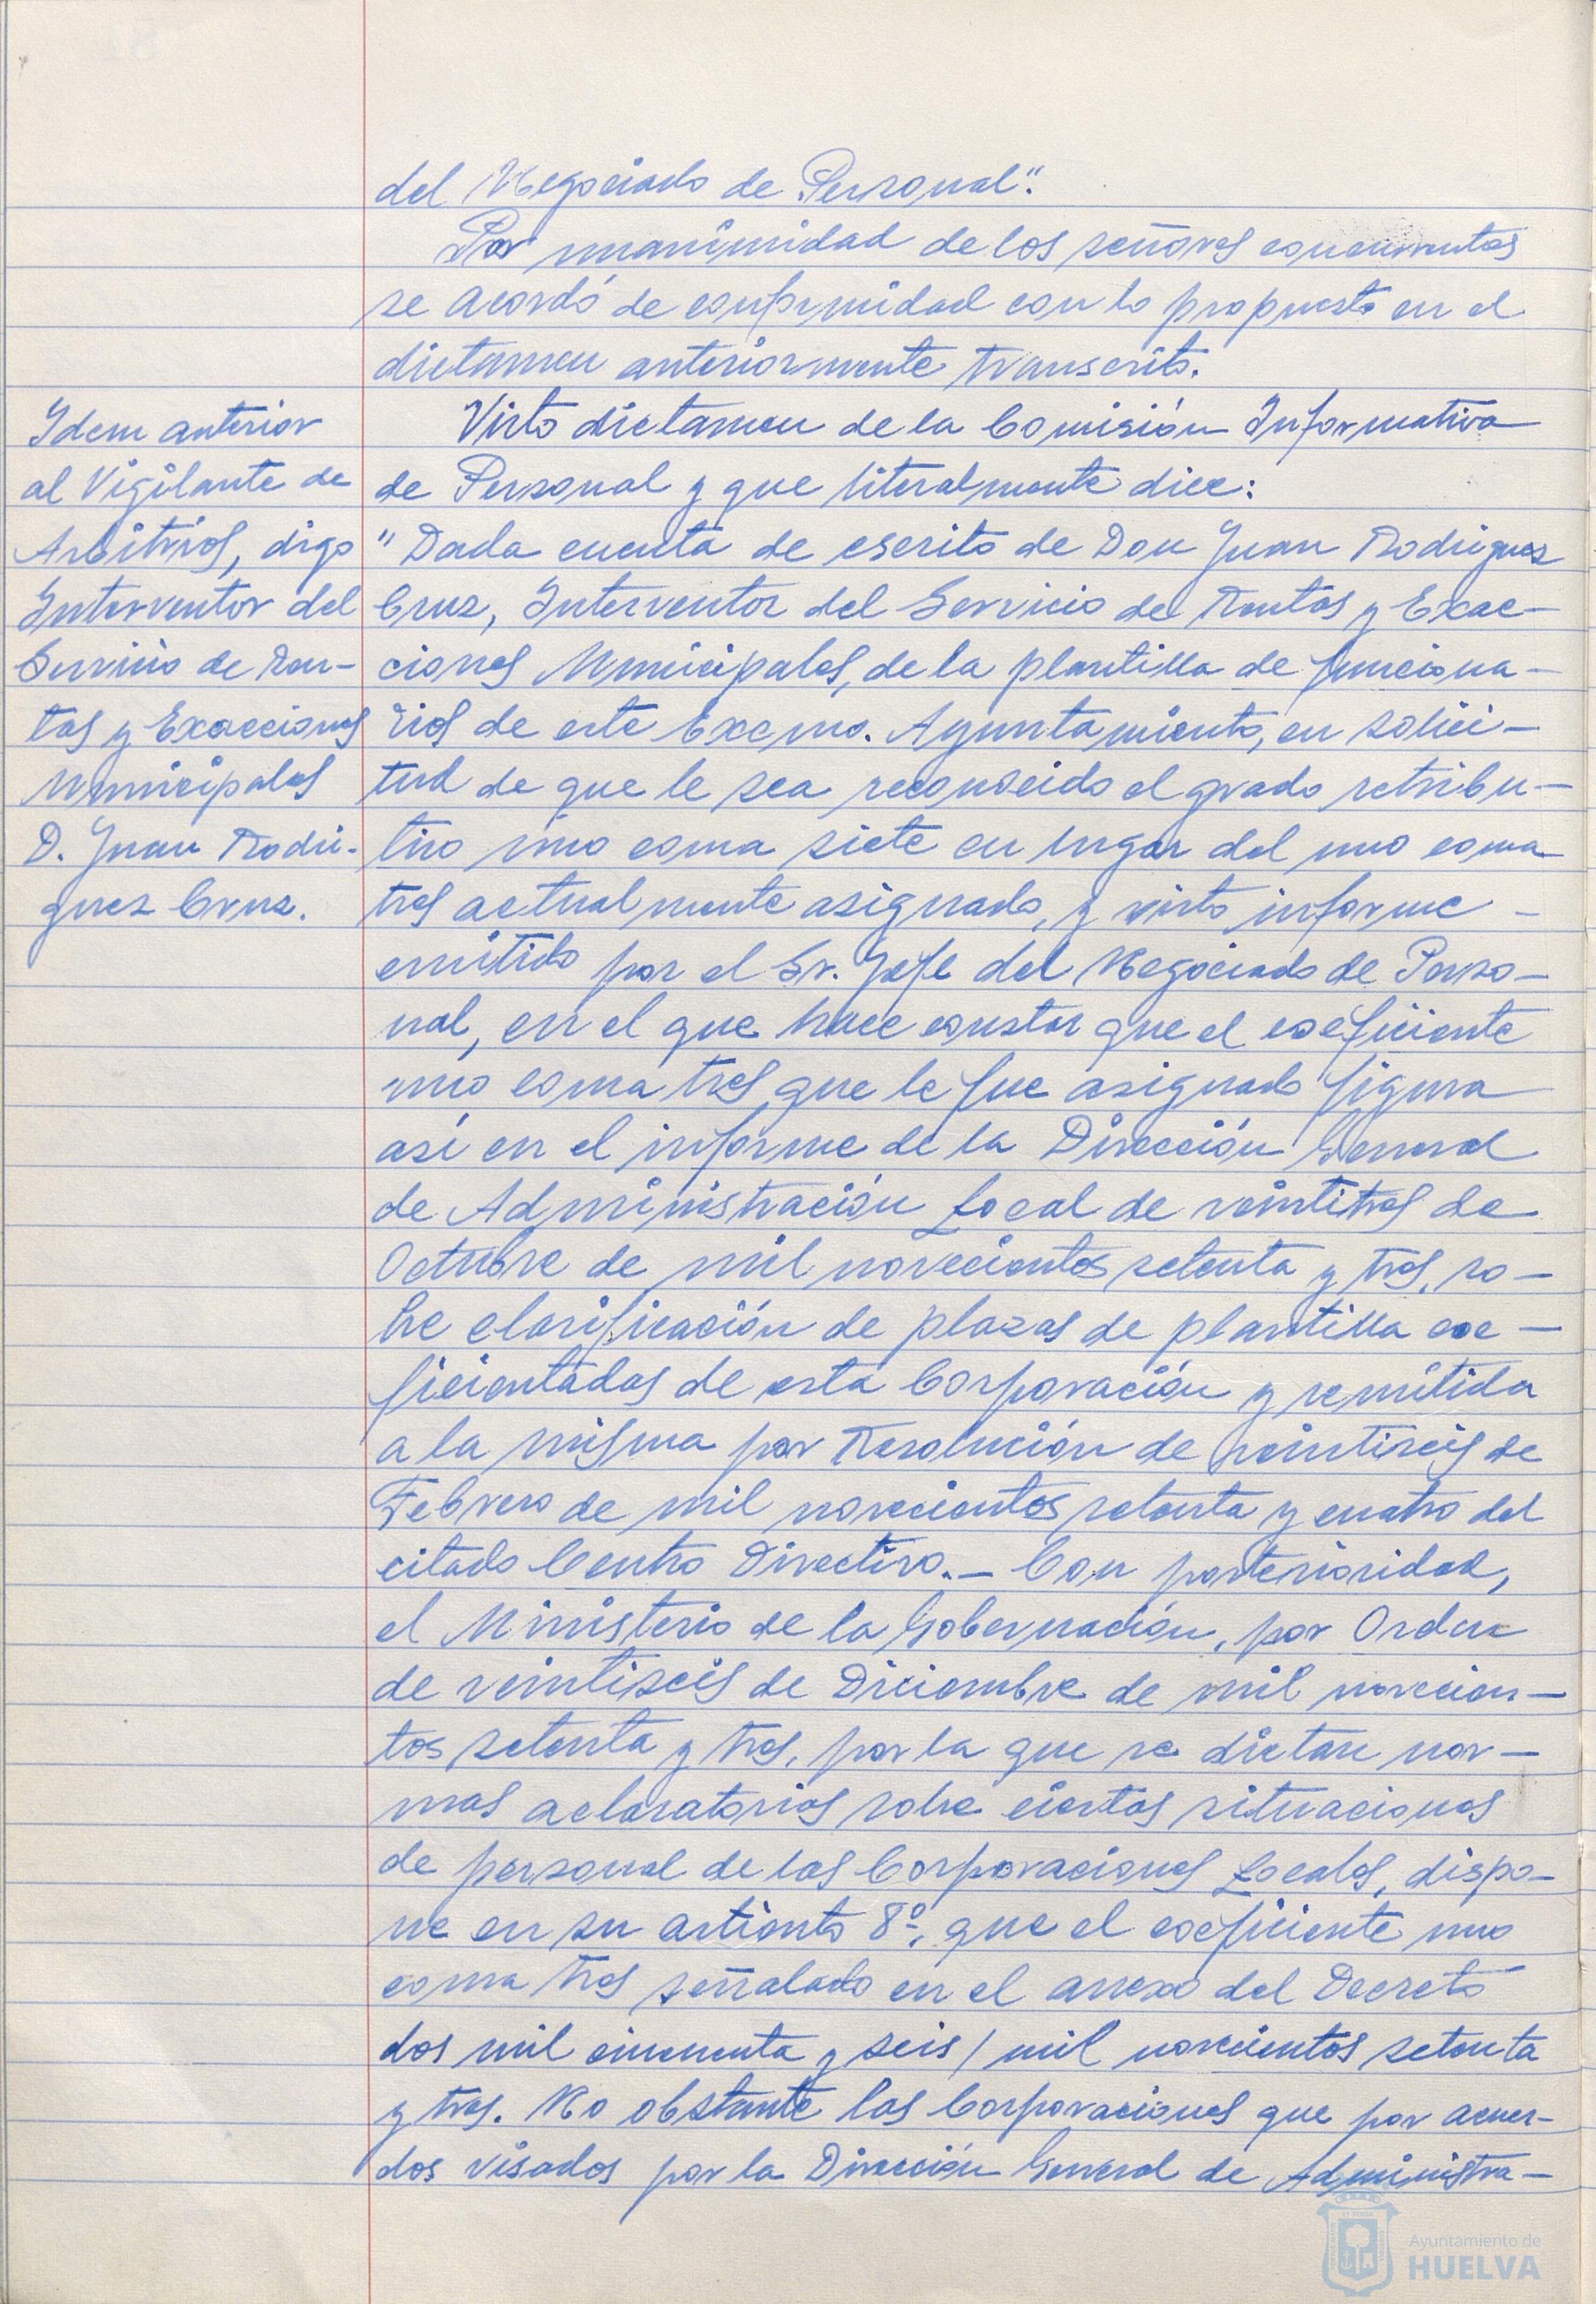 del Negociado de Personal".
Por unanimidad de los señores concurrentes
se acordó de conformidad con lo propuesto en el
dictamen anteriormente transcrito.
Idem anterior
al Vigilante de
Arbitrios, digo
Interventor del
Servicio de Ren-
tas y Exacciones
Municipales
D. Juan Rodri-
guez Cruz.
Visto dictamen de la Comisión Informativa
de Personal y que literalmente dice:
"Dada cuenta de escrito de Don Juan Rodriguez
Cruz, Interventor del Servicio de Rentas y Exac-
ciones Municipales, de la plantilla de funciona-
rios de este Excmo. Ayuntamiento, en solici-
tud de que le sea reconocido el grado retribu-
tivo uno coma siete en lugar del uno coma
tres actualmente asignado, y visto informe -
emitido por el Sr. Jefe del Negociado de Perso-
nal, en el que hace constar que el coeficiente
uno coma tres que le fue asignado figura
así en el informe de la Dirección General
de Administración Local de veintitres de
Octubre de mil novecientos setenta y tres, so-
bre clasificación de plazas de plantilla coe-
ficientadas de esta Corporación y remitida
a la misma por Resolución de veintiseis de
Febrero de mil novecientos setenta y cuatro del
citado Centro Directivo.- Con posterioridad,
el Ministerio de la Gobernación, por Orden
de veintiseis de Diciembre de mil novecien-
tos setenta y tres, por la que se dictan nor-
mas aclaratorias sobre ciertas situaciones
de personal de las Corporaciones Locales, dispo-
ne en su artículo 8º, que el coeficiente uno
coma tres señalado en el anexo del Decreto
dos mil cincuenta y seis / mil novecientos setenta
y tres. No obstante las Corporaciones que por acuer-
dos visados por la Dirección General de Administra-
Ayuntamiento de
HUELVA